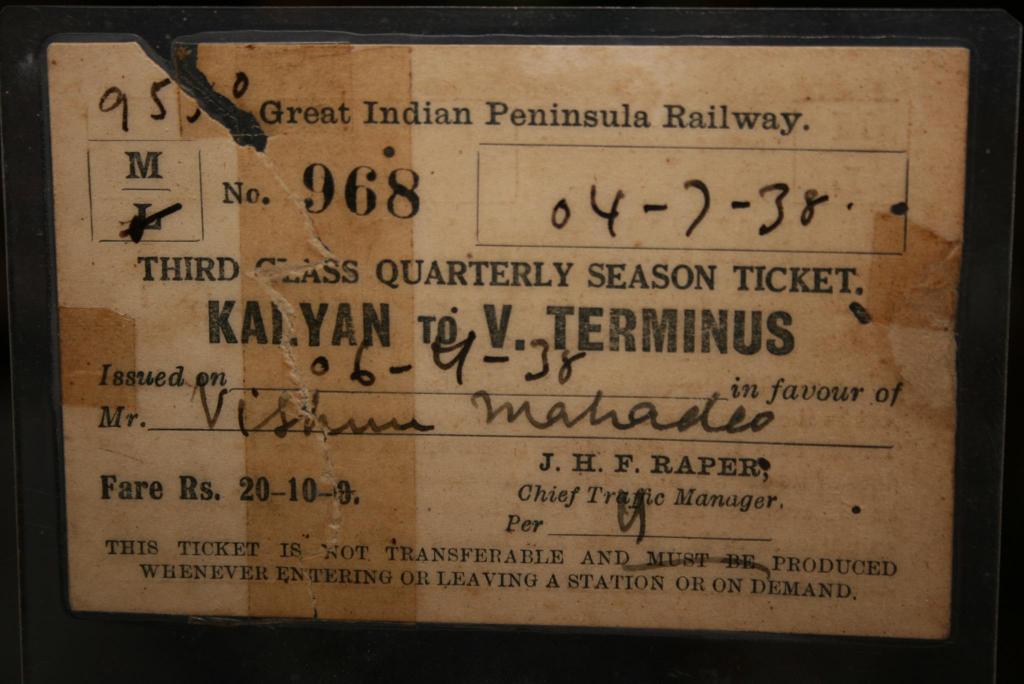 Great Indian Peninsula Railway.
M
L
No. 968
04-7-38
THIRD CLASS QUARTERLY SEASON TICKET.
KALYAN TO V. TERMINUS
Issued on 06-4-38 in favour of
Mr. Vishnu Mahadeo
J. H. F. RAPER,
Fare Rs. 20-10-0.
Chief Traffic Manager.
Per
THIS TICKET IS NOT TRANSFERABLE AND MUST BE PRODUCED
WHENEVER ENTERING OR LEAVING A STATION OR ON DEMAND.